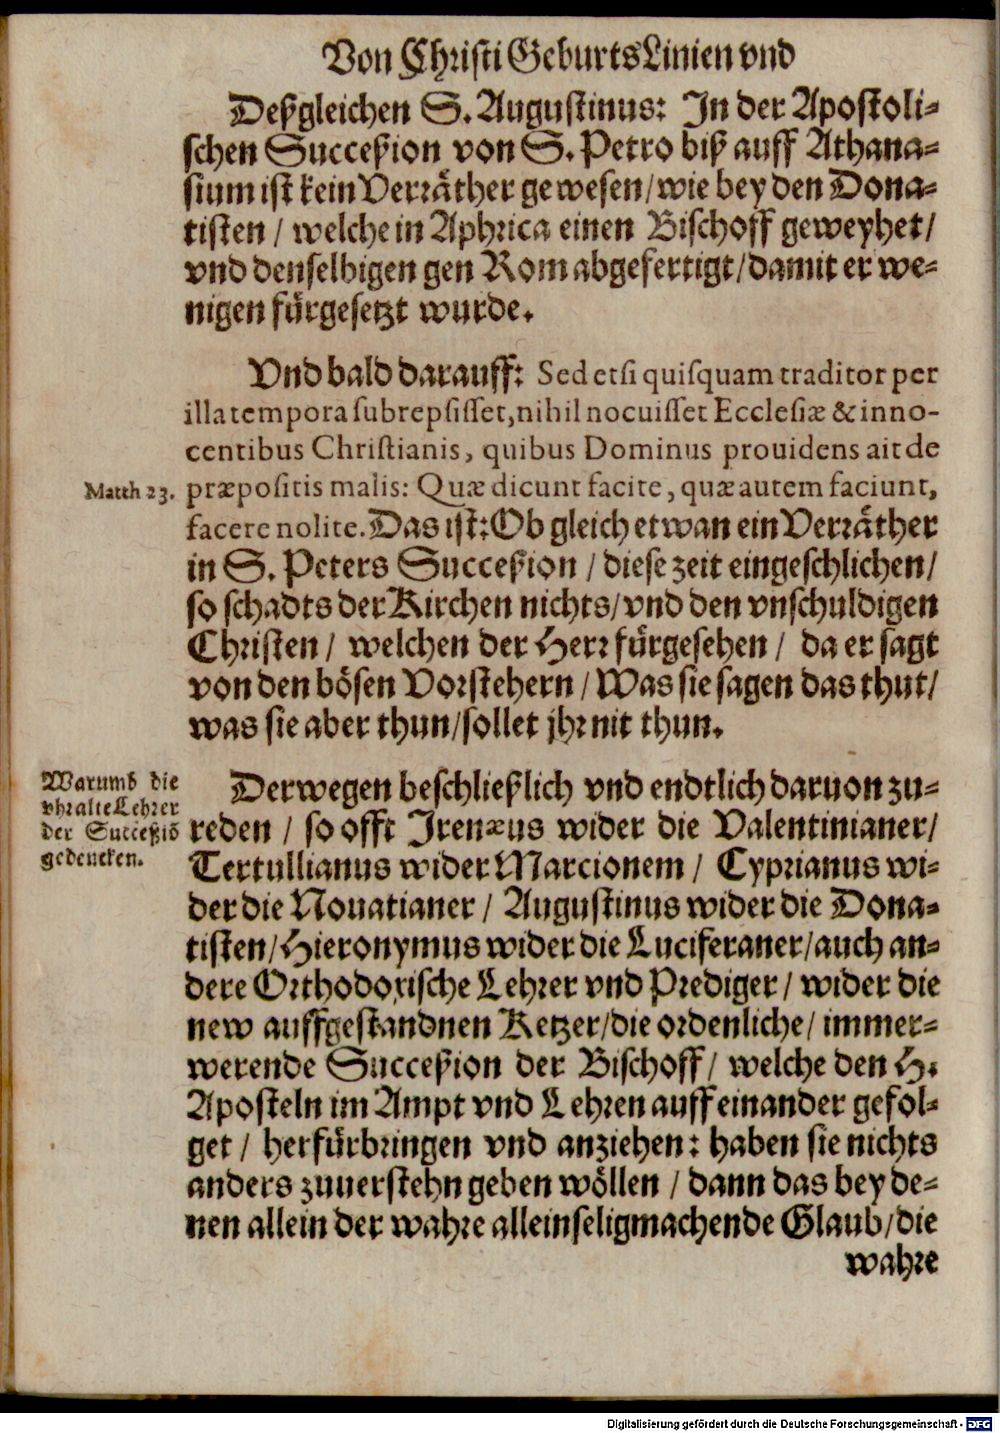 Von Christi Geburts Linien vnd
Deßgleichen S. Augustinus: In der Apostoli-
schen Succeßion von S. Petro biß auff Athana-
sium ist kein Verräther gewesen/wie bey den Dona-
tisten / welche in Aphrica einen Bischoff geweyhet/
vnd denselbigen gen Rom abgefertigt/damit er we-
nigen fürgesetzt wurde.
Vnd bald darauff: Sed etsi quisquam traditor per
illa tempora subrepsisset, nihil nocuisset Ecclesiæ & inno-
centibus Christianis, quibus Dominus prouidens ait de
Matth 23. præpositis malis: Quæ dicunt facite, quæ autem faciunt,
facere nolite. Das ist: Ob gleich etwan ein Verräther
in S. Peters Succeßion / diese zeit eingeschlichen/
so schadts der Kirchen nichts/vnd den vnschuldigen
Christen / welchen der Herr fürgesehen / da er sagt
von den bösen Vorstehern / Was sie sagen das thut/
was sie aber thun/sollet jhr nit thun.
Warumb die
vhralte Lehrer
der Succeßiō
gedencken.
Derwegen beschließlich vnd endtlich daruon zu-
reden / so offt Irenæus wider die Valentinianer/
Tertullianus wider Marcionem / Cyprianus wi-
der die Nouatianer / Augustinus wider die Dona-
tisten/Hieronymus wider die Luciferaner/auch an-
dere Orthodoxische Lehrer vnd Prediger / wider die
new auffgestandnen Ketzer/die ordenliche/ immer-
werende Succeßion der Bischoff/ welche den H.
Aposteln im Ampt vnd Lehren auff einander gefol-
get / herfürbringen vnd anziehen: haben sie nichts
anders zuuerstehn geben wöllen / dann das bey de-
nen allein der wahre alleinseligmachende Glaub/die
wahre
Digitalisierung gefördert durch die Deutsche Forschungsgemeinschaft - DFG